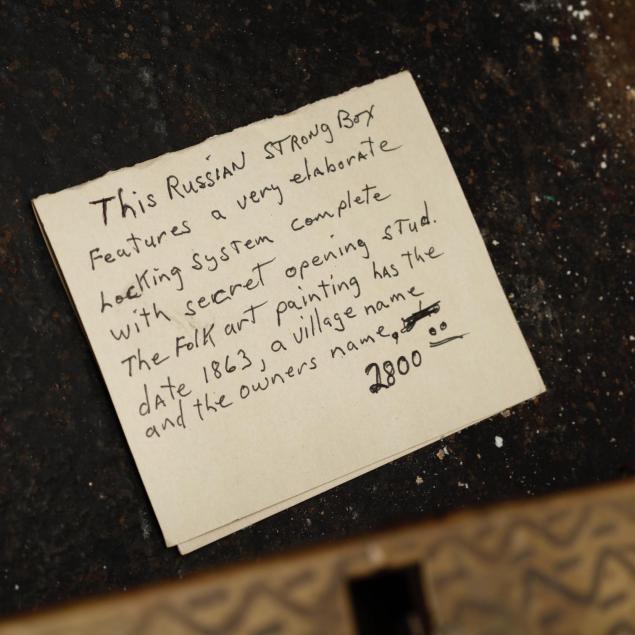 This RUSSiAN STRONg BOX
Features a very elaborate
Locking System complete
with secret opening stud.
The Folk art painting has the
date 1863, a village name
and the owners name.
2800 00